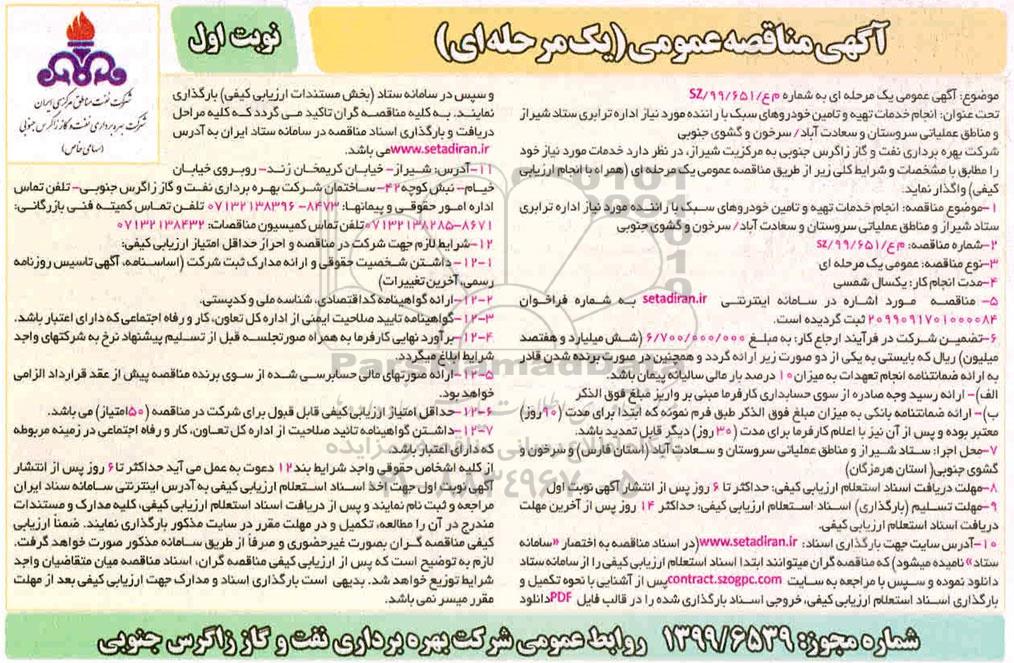 آگهی مناقصه عمومی (یک مرحله ای)
نوبت اول
شرکت نفت مناطق مرکزی ایران
شرکت بهره برداری نفت و گاز زاگرس جنوبی
(سهامی خاص)
موضوع: آگهی عمومی یک مرحله ای به شماره م ع/۶۵۱/۹۹/SZ
تحت عنوان: انجام خدمات تهیه و تامین خودروهای سبک با راننده مورد نیاز اداره ترابری ستاد شیراز
و مناطق عملیاتی سروستان و سعادت آباد/ سرخون و گشوی جنوبی
شرکت بهره برداری نفت و گاز زاگرس جنوبی به مرکزیت شیراز، در نظر دارد خدمات مورد نیاز خود
را مطابق با مشخصات و شرایط کلی زیر از طریق مناقصه عمومی یک مرحله ای (همراه با انجام ارزیابی
کیفی) واگذار نماید:
۱-موضوع مناقصه: انجام خدمات تهیه و تامین خودروهای سبک با راننده مورد نیاز اداره ترابری
ستاد شیراز و مناطق عملیاتی سروستان و سعادت آباد/ سرخون و گشوی جنوبی
۲-شماره مناقصه: م ع/۶۵۱/۹۹/sz
۳-نوع مناقصه: عمومی یک مرحله ای
۴-مدت انجام کار: یکسال شمسی
۵- مناقصه مورد اشاره در سامانه اینترنتی setadiran.ir به شماره فراخوان
۲۰۹۹۰۹۱۷۰۱۰۰۰۰۸۴ ثبت گردیده است.
۶-تضمین شرکت در فرآیند ارجاع کار: به مبلغ ۶/۷۰۰/۰۰۰/۰۰۰ (شش میلیارد و هفتصد
میلیون) ریال که بایستی به یکی از دو صورت زیر ارائه گردد و همچنین در صورت برنده شدن قادر
به ارائه ضمانتنامه انجام تعهدات به میزان ۱۰ درصد بار مالی سالیانه پیمان باشد.
الف)- ارائه رسید وجه صادره از سوی حسابداری کارفرما مبنی بر واریز مبلغ فوق الذکر
ب)- ارائه ضمانتنامه بانکی به میزان مبلغ فوق الذکر طبق فرم نمونه که ابتدا برای مدت (۹۰ روز)
معتبر بوده و پس از آن نیز با اعلام کارفرما برای مدت (۳۰ روز) دیگر قابل تمدید باشد.
۷-محل اجرا: ستاد شیراز و مناطق عملیاتی سروستان و سعادت آباد (استان فارس) و سرخون و
گشوی جنوبی( استان هرمزگان)
۸-مهلت دریافت اسناد استعلام ارزیابی کیفی: حداکثر تا ۶ روز پس از انتشار آگهی نوبت اول
۹-مهلت تسلیم (بارگذاری) اسناد استعلام ارزیابی کیفی: حداکثر ۱۴ روز پس از آخرین مهلت
دریافت اسناد استعلام ارزیابی کیفی.
۱۰-آدرس سایت جهت بارگذاری اسناد: www.setadiran.ir(در اسناد مناقصه به اختصار «سامانه
ستاد» نامیده میشود) که مناقصه گران میتوانند ابتدا اسناد استعلام ارزیابی کیفی را از سامانه ستاد
دانلود نموده و سپس با مراجعه به سایت contract.szogpc.com پس از آشنایی با نحوه تکمیل و
بارگذاری اسناد استعلام ارزیابی کیفی، خروجی اسناد بارگذاری شده را در قالب فایل PDF دانلود
و سپس در سامانه ستاد (بخش مستندات ارزیابی کیفی) بارگذاری
نمایند. به کلیه مناقصه گران تاکید می گردد که کلیه مراحل
دریافت و بارگذاری اسناد مناقصه در سامانه ستاد ایران به آدرس
www.setadiran.ir می باشد.
۱۱-آدرس: شیراز- خیابان کریمخان زند- روبروی خیابان
خیام- نبش کوچه ۴۲- ساختمان شرکت بهره برداری نفت و گاز زاگرس جنوبی- تلفن تماس
اداره امور حقوقی و پیمانها: ۸۴۷۳- ۰۷۱۳۲۱۳۸۳۹۶ تلفن تماس کمیته فنی بازرگانی:
۸۶۷۱-۰۷۱۳۲۱۳۸۲۸۵تلفن تماس کمیسیون مناقصات: ۰۷۱۳۲۱۳۸۴۳۲
۱۲-شرایط لازم جهت شرکت در مناقصه و احراز حداقل امتیاز ارزیابی کیفی:
۱۲-۱- داشتن شخصیت حقوقی و ارائه مدارک ثبت شرکت (اساسنامه، آگهی تاسیس روزنامه
رسمی، آخرین تغییرات)
۱۲-۲-ارائه گواهینامه کداقتصادی، شناسه ملی و کدپستی.
۱۲-۳-گواهینامه تایید صلاحیت ایمنی از اداره کل تعاون، کار و رفاه اجتماعی که دارای اعتبار باشد.
۱۲-۴-برآورد نهایی کارفرما به همراه صورتجلسه قبل از تسلیم پیشنهاد نرخ به شرکتهای واجد
شرایط ابلاغ میگردد.
۱۲-۵-ارائه صورتهای مالی حسابرسی شده از سوی برنده مناقصه پیش از عقد قرارداد الزامی
خواهد بود.
۱۲-۶-حداقل امتیاز ارزیابی کیفی قابل قبول برای شرکت در مناقصه (۵۰امتیاز) می باشد.
۱۲-۷-داشتن گواهینامه تائید صلاحیت از اداره کل تعاون، کار و رفاه اجتماعی در زمینه مربوطه
که دارای اعتبار باشد.
از کلیه اشخاص حقوقی واجد شرایط بند ۱۲ دعوت به عمل می آید حداکثر تا ۶ روز پس از انتشار
آگهی نوبت اول جهت اخذ اسناد استعلام ارزیابی کیفی به آدرس اینترنتی سامانه ستاد ایران
مراجعه و ثبت نام نمایند و پس از دریافت اسناد استعلام ارزیابی کیفی، کلیه مدارک و مستندات
مندرج در آن را مطالعه، تکمیل و در مهلت مقرر در سایت مذکور بارگذاری نمایند. ضمناً ارزیابی
کیفی مناقصه گران بصورت غیرحضوری و صرفاً از طریق سامانه مذکور صورت خواهد گرفت.
لازم به توضیح است که پس از ارزیابی کیفی مناقصه گران، اسناد مناقصه میان متقاضیان واجد
شرایط توزیع خواهد شد. بدیهی است بارگذاری اسناد و مدارک جهت ارزیابی کیفی بعد از مهلت
مقرر میسر نمی باشد.
شماره مجوز: ۱۳۹۹/۶۵۳۹ روابط عمومی شرکت بهره برداری نفت و گاز زاگرس جنوبی